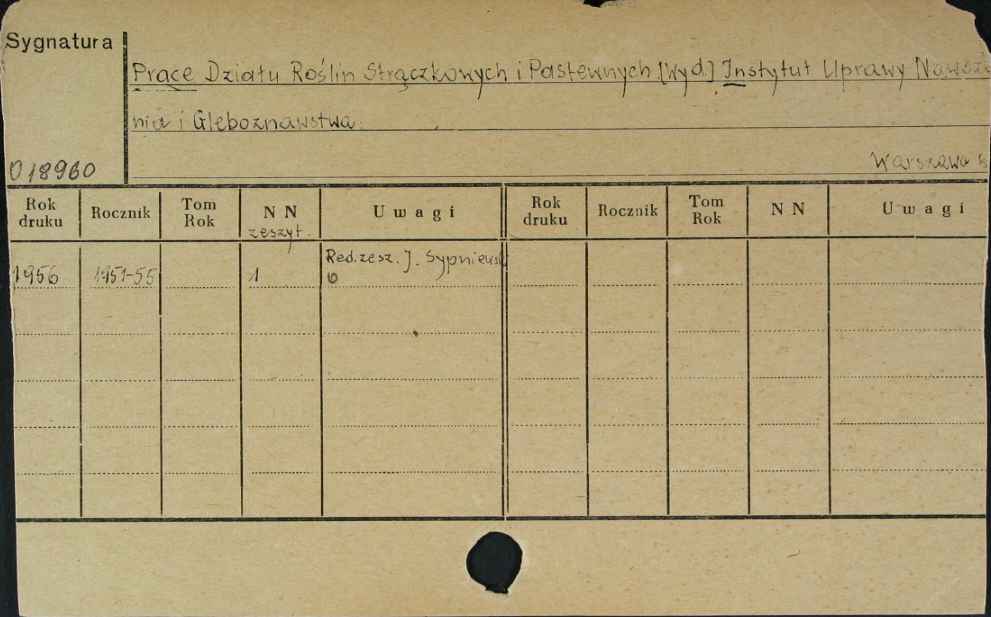 Sygnatura
Prace Działu Roślin Strączkowych i Pastewnych [Wyd.] Instytut Uprawy Nawoże
nia i Gleboznawstwa.
018960
Warszawa
Rok druku Rocznik Tom Rok NN zeszyt. Uwagi Rok druku Rocznik Tom Rok NN Uwagi
1956 1951-55 1 Red.zesz. J. Sypniewsk